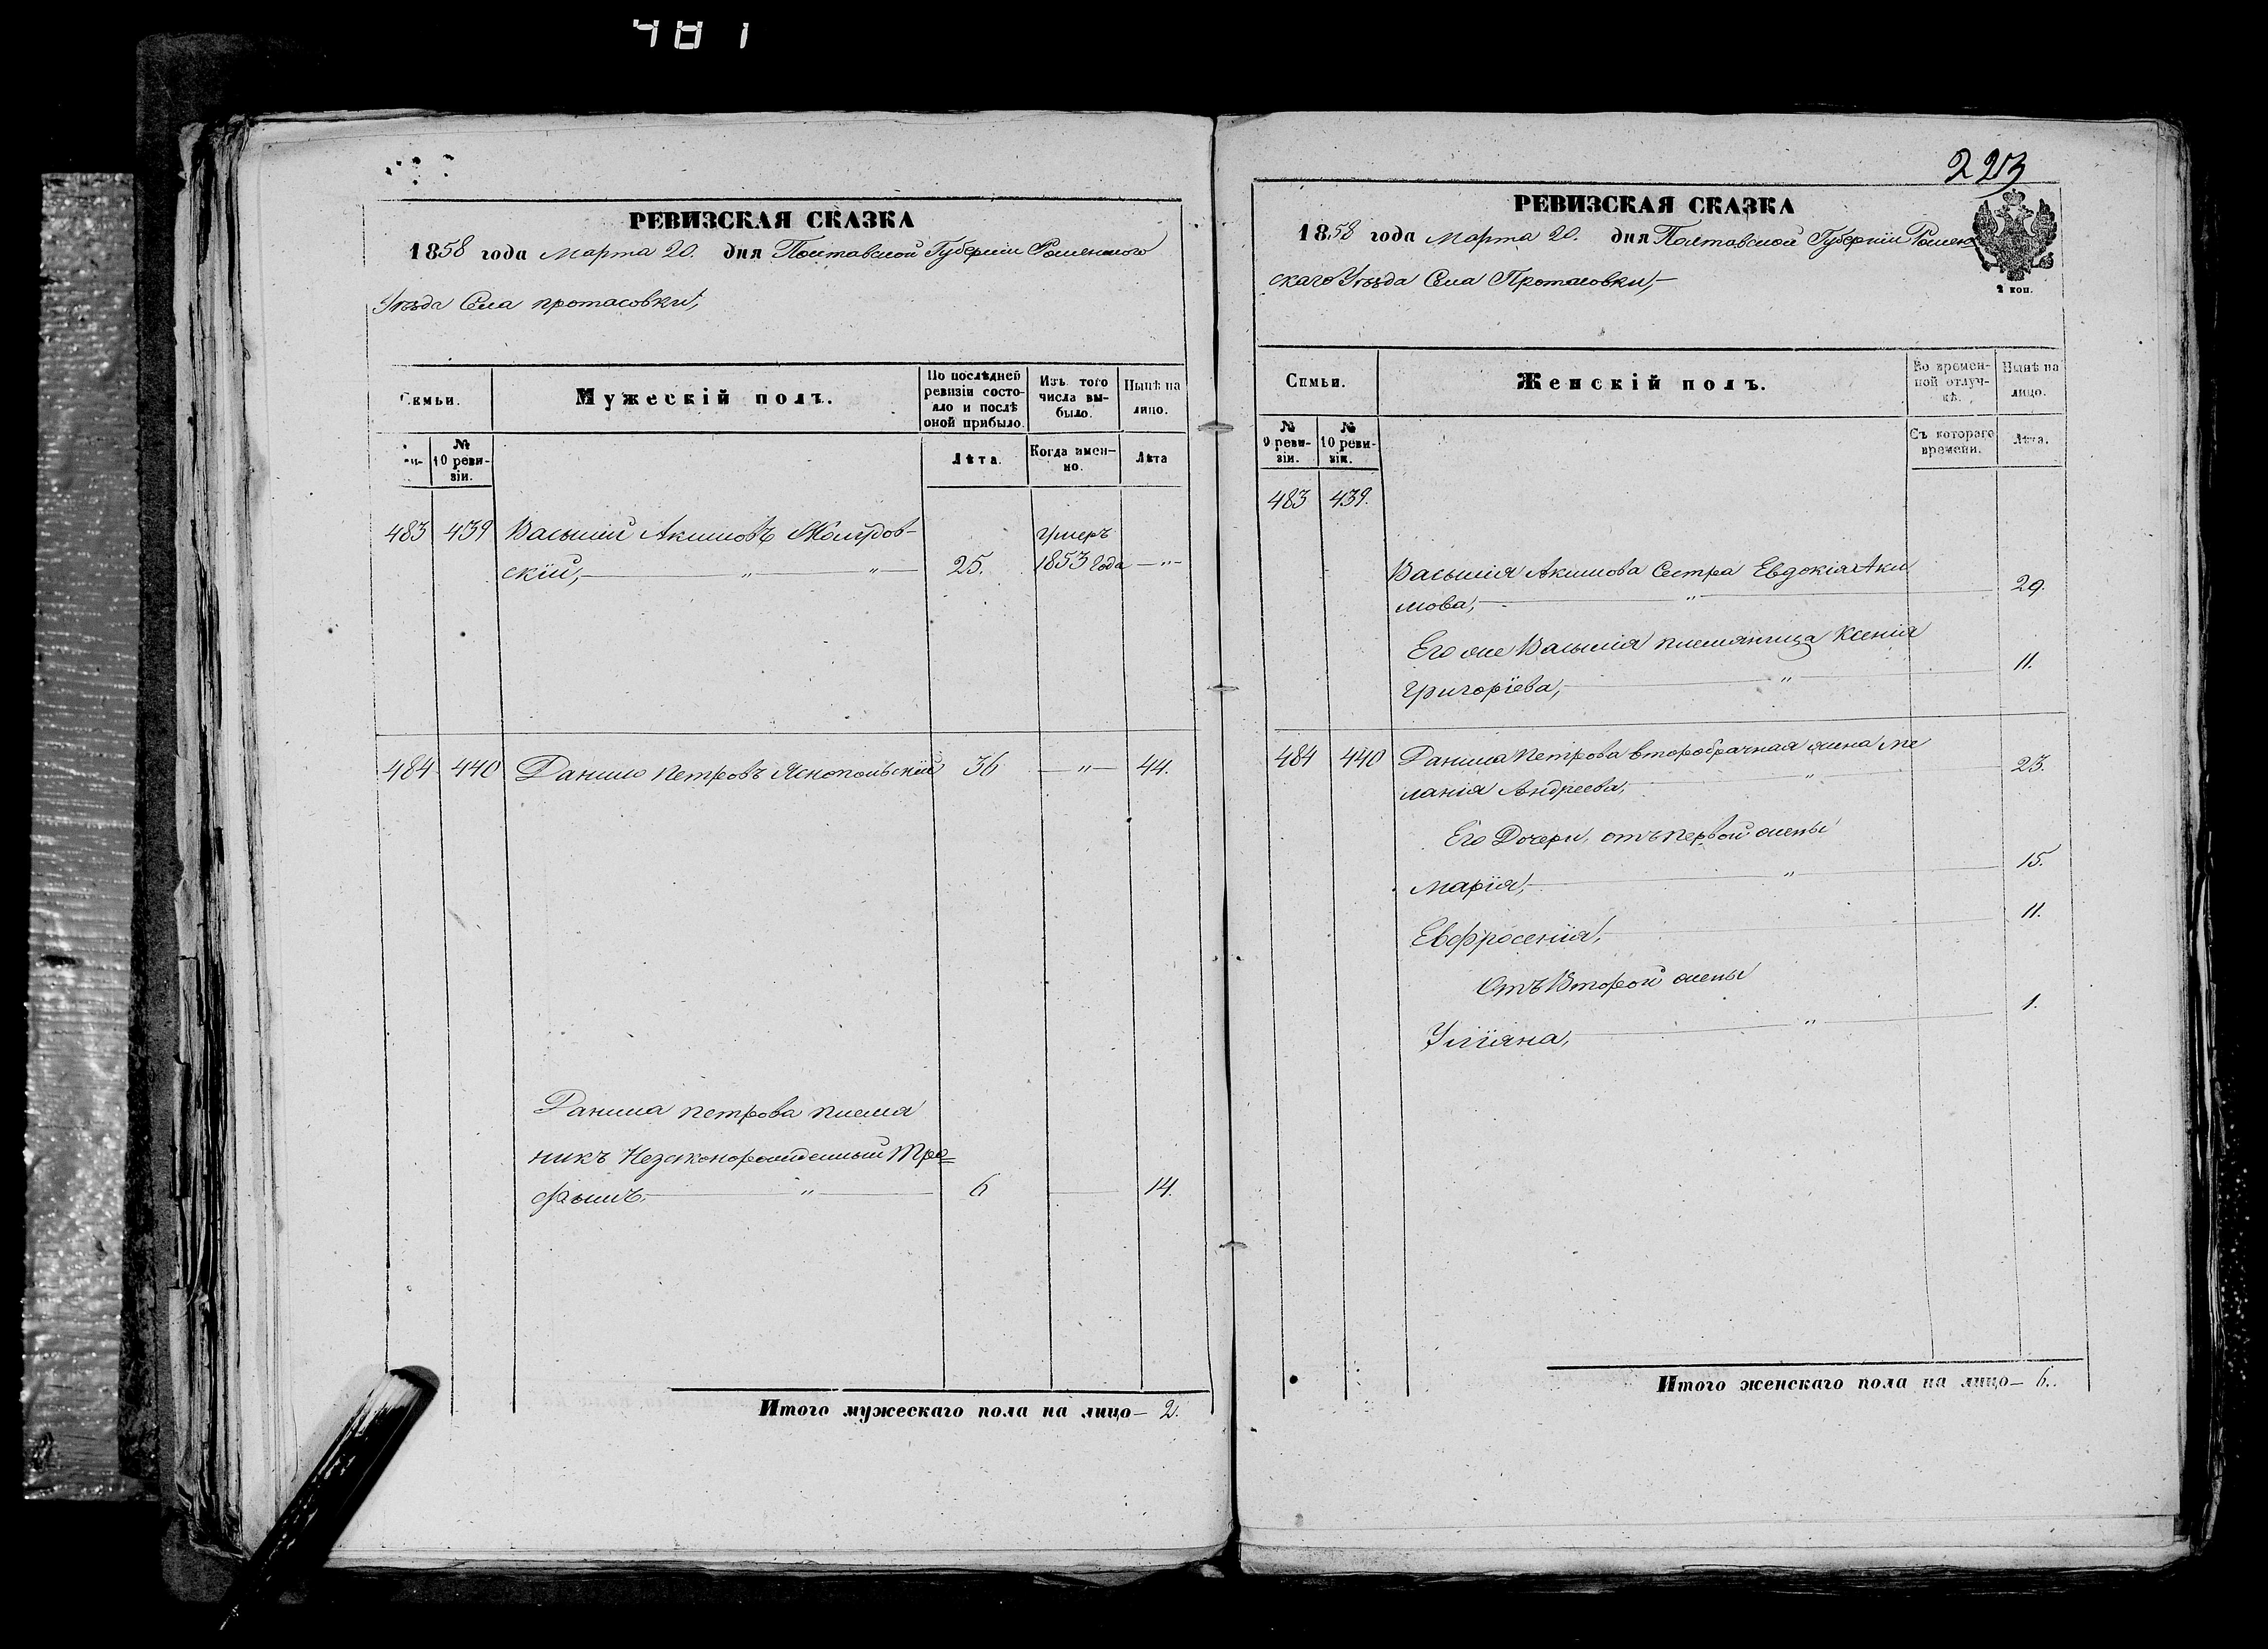 481
РЕВИЗСКАЯ СКАЗКА
1858 года Марта 20. дня Полтавской Губерніи Роменского
Уѣзда Села протасовки,
Семьи.
Мужескій полъ.
По послѣдней ревизіи состояло и послѣ оной прибыло.
Изъ того числа выбыло.
Нынѣ на лицо.
№ 10 ревизіи.
Лѣта.
Когда именно.
Лѣта
483 439 Василій Акимовъ
скій, — " — " — 25. Умеръ 1853 года — " —
484 440 Данило Петровъ Яснопольскій 36 — " — 44.
Данила петрова племя
никъ Незаконорожденный Тро=
фымъ. — " — 6 — 14.
Итого мужескаго пола на лицо — 2.
223
РЕВИЗСКАЯ СКАЗКА
1858 года Марта 20. дня Полтавской Губерніи Ромен
скаго Уѣзда Села Протасовки, —
2 коп.
Семьи.
Женскій полъ.
Во временной отлучкѣ.
Нынѣ на лицо.
№ 9 ревизіи.
№ 10 ревизіи.
Съ котораго времени.
Лѣта.
483 439.
Василія Акимова Сестра Евдокія Аки
мова, — " — 29.
Его же Василія племянница Ксенія
Григоріева, — " — 11.
484 440 Данила Петрова второбрачная жена ме
ланія Андреева, — " — 23.
Его Дочери, отъ первой жены
марія, — " — 15.
Евфросенія, — 11.
Отъ Второй жены
Уліяна, — " — 1.
Итого женскаго пола на лицо — 6.